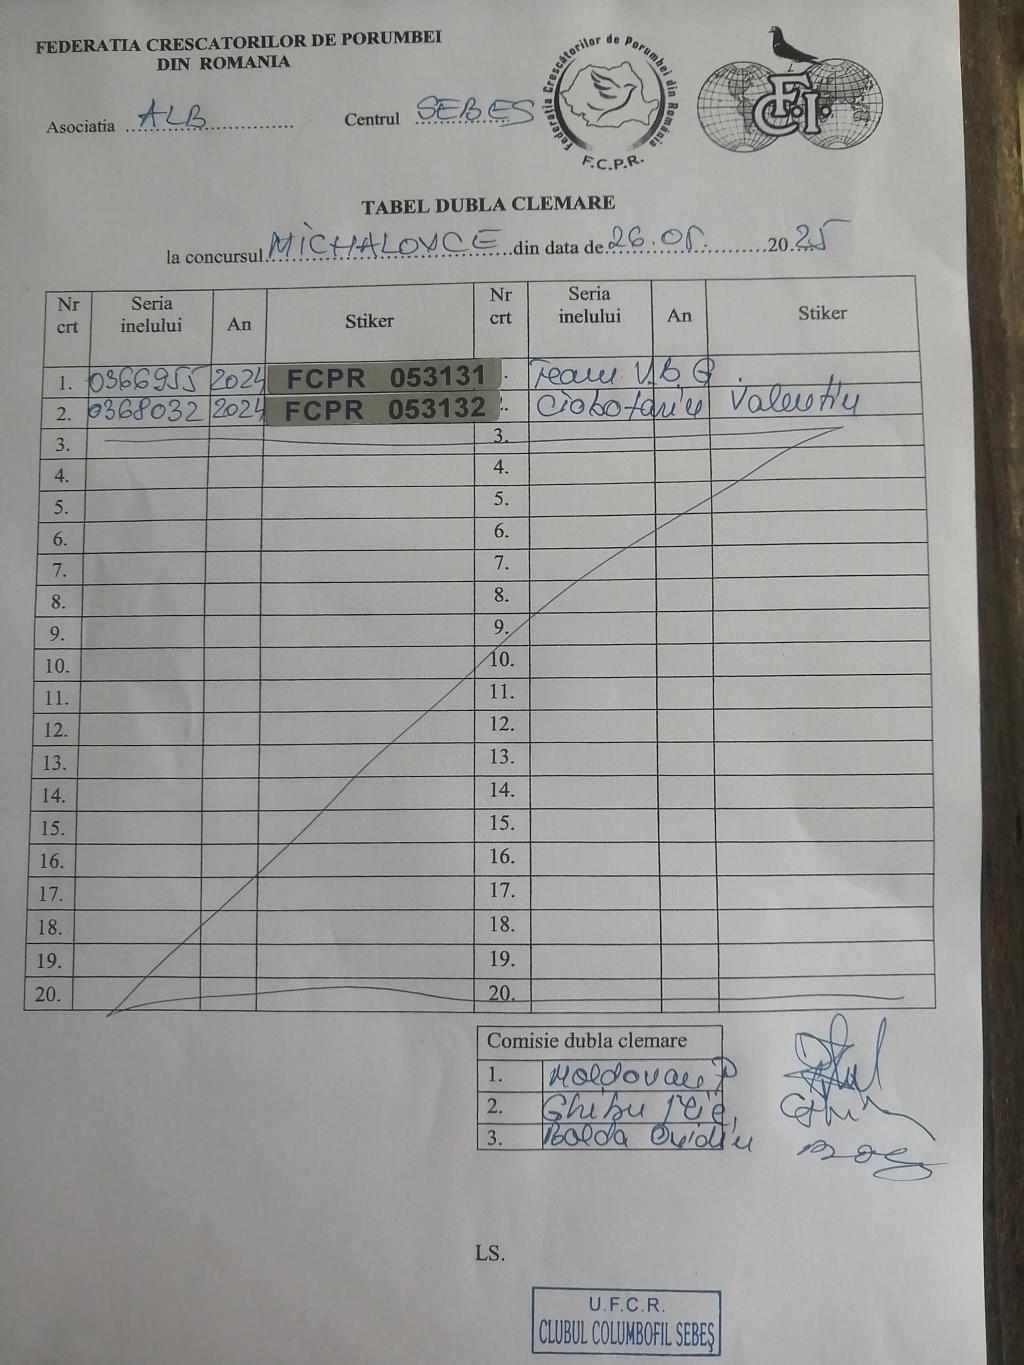 FEDERATIA CRESCATORILOR DE PORUMBEI
DIN ROMANIA
Federația Crescătorilor de Porumbei din România
F.C.P.R.
FCI
Asociatia ALB Centrul SEBEȘ
TABEL DUBLA CLEMARE
la concursul MICHALOVCE din data de 26.05. 2025
Nr crt Seria inelului An Stiker Nr crt Seria inelului An Stiker
1. 0366955 2024 FCPR 053131 . Team V.B.G.
2. 0368032 2024 FCPR 053132 2. Ciobotariu Valentin
3. 3.
4. 4.
5. 5.
6. 6.
7. 7.
8. 8.
9. 9.
10. 10.
11. 11.
12. 12.
13. 13.
14. 14.
15. 15.
16. 16.
17. 17.
18. 18.
19. 19.
20. 20.
Comisie dubla clemare
1. Moldovan P
2. Ghibu Ilie
3. Bolda Ovidiu
LS.
U.F.C.R.
CLUBUL COLUMBOFIL SEBEȘ